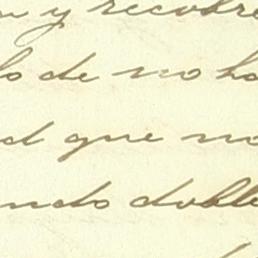 y recobre
lo de no ha
d que no
ndo doble